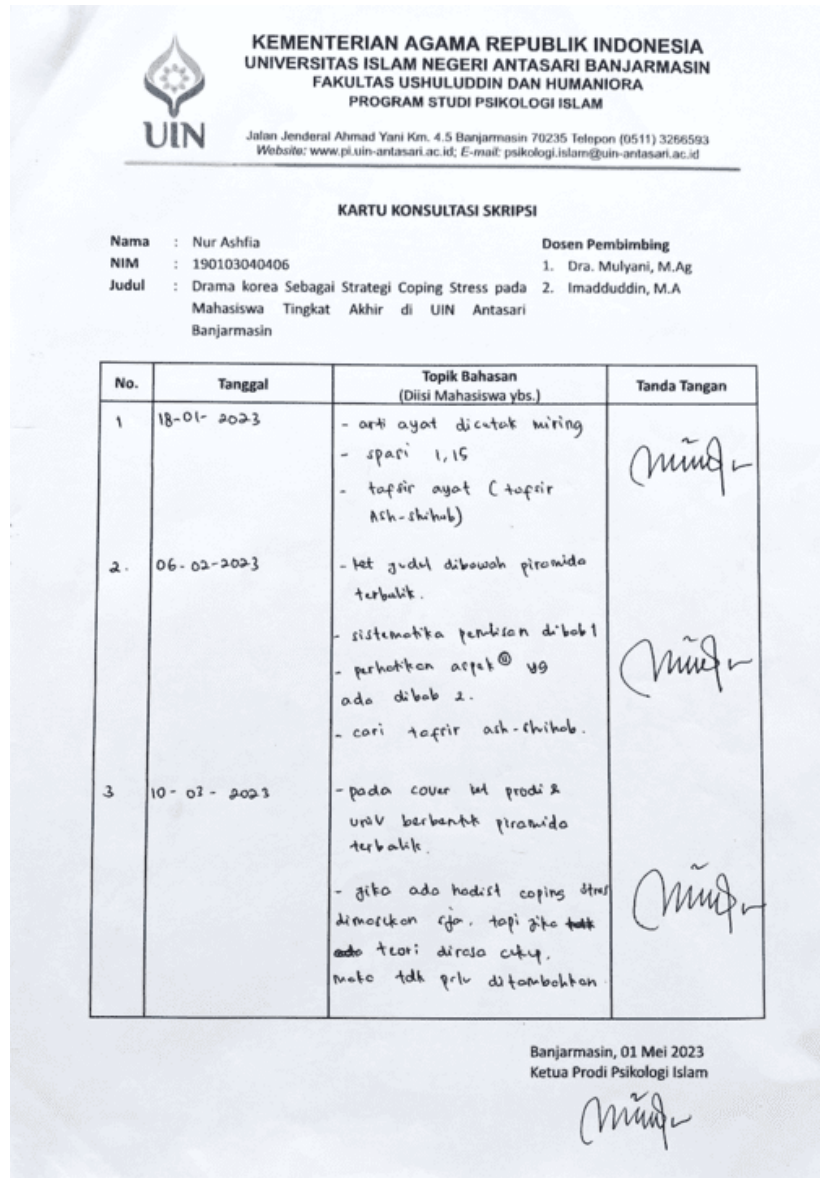 KEMENTERIAN AGAMA REPUBLIK INDONESIA
UNIVERSITAS ISLAM NEGERI ANTASARI BANJARMASIN
FAKULTAS USHULUDDIN DAN HUMANIORA
PROGRAM STUDI PSIKOLOGI ISLAM
UIN
Jalan Jenderal Ahmad Yani Km. 4.5 Banjarmasin 70235 Telepon (0511) 3266593
Website: www.pi.uin-antasari.ac.id; E-mail: psikologi.islam@uin-antasari.ac.id
KARTU KONSULTASI SKRIPSI
Nama : Nur Ashfia
NIM : 190103040406
Judul : Drama korea Sebagai Strategi Coping Stress pada
Mahasiswa Tingkat Akhir di UIN Antasari
Banjarmasin
Dosen Pembimbing
1. Dra. Mulyani, M.Ag
2. Imadduddin, M.A
No. Tanggal Topik Bahasan Tanda Tangan
(Diisi Mahasiswa ybs.)
1 18-01-2023 - arti ayat dicetak miring
- spasi 1,15
- tafsir ayat (tafsir
Ash-shihab)
2. 06-02-2023 - ket judul dibawah piramida
terbalik.
- sistematika penulisan dibab 1
- perhatikan aspek yg
ada dibab 2.
- cari tafsir ash-shihab.
3 10-03-2023 - pada cover ket prodi &
univ berbentk piramida
terbalik.
- jika ada hadist coping stres
dimasukan sja, tapi jika
teori dirasa ckup,
maka tdk prlu ditambahkan
Banjarmasin, 01 Mei 2023
Ketua Prodi Psikologi Islam